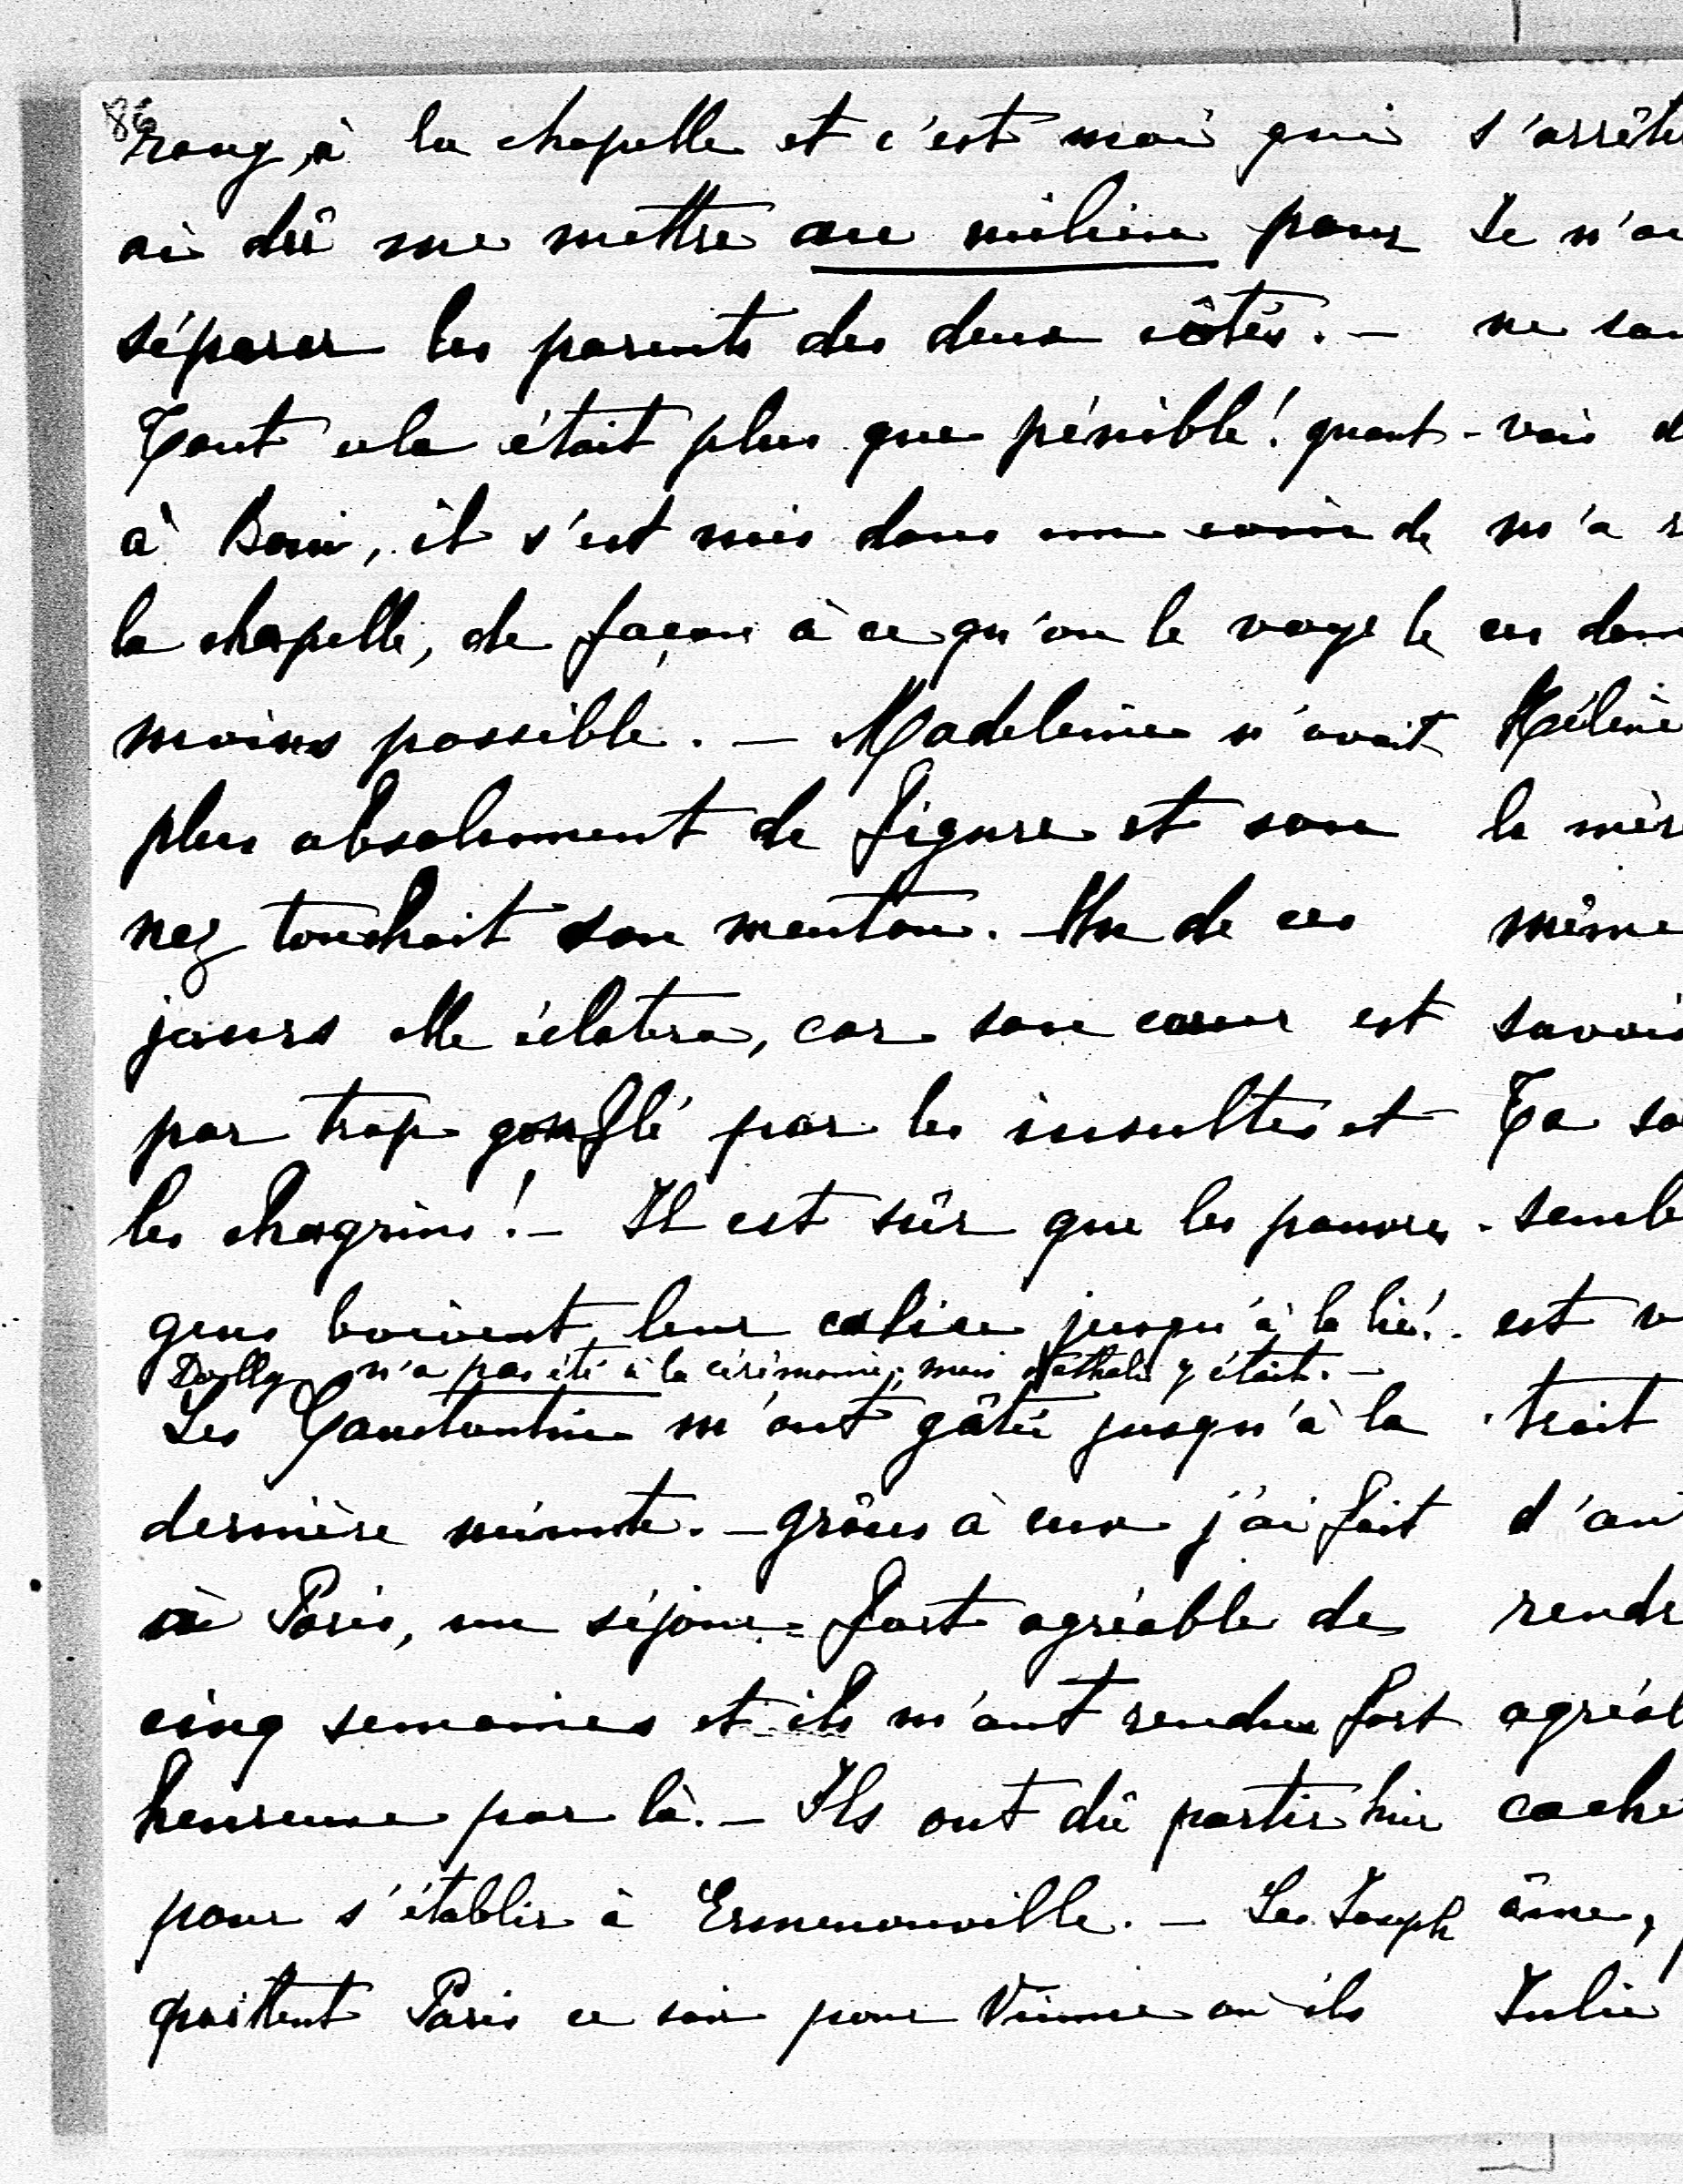 86
rang, à la chapelle et c'est moi qui
ai dû me mettre au milieu pour
séparer les parents des deux côtés. —
Tout cela était plus que pénible! quant
à Boni, il s'est mis dans un coin de
la chapelle, de façon à ce qu'on le voye le
moins possible. — Madeleine n'avait
plus absolument de figure et son
nez touchait son menton. — Un de ces
jours elle éclatera, car son cœur est
par trop gonflé par les insultes et
les chagrins! — Il est sûr que les pauvres
gens boivent leur calice jusqu'à la lie!
Dolly n'a pas été à la cérémonie; mais Nathalie y était. —
Les Constantin m'ont gâtée jusqu'à la
dernière minute. — grâces à eux j'ai fait
à Paris, un séjour fort agréable de
cinq semaines et ils m'ont rendue fort
heureuse par là. — Ils ont dû partir hier
pour s'établir à Ermenonville. — Les Joseph
quittent Paris ce soir pour Vienne où ils
Je n'a
vais
m'a
Hélène
la mèr
même
savoi
Ta
est
trait
rendr
âme,
Julie